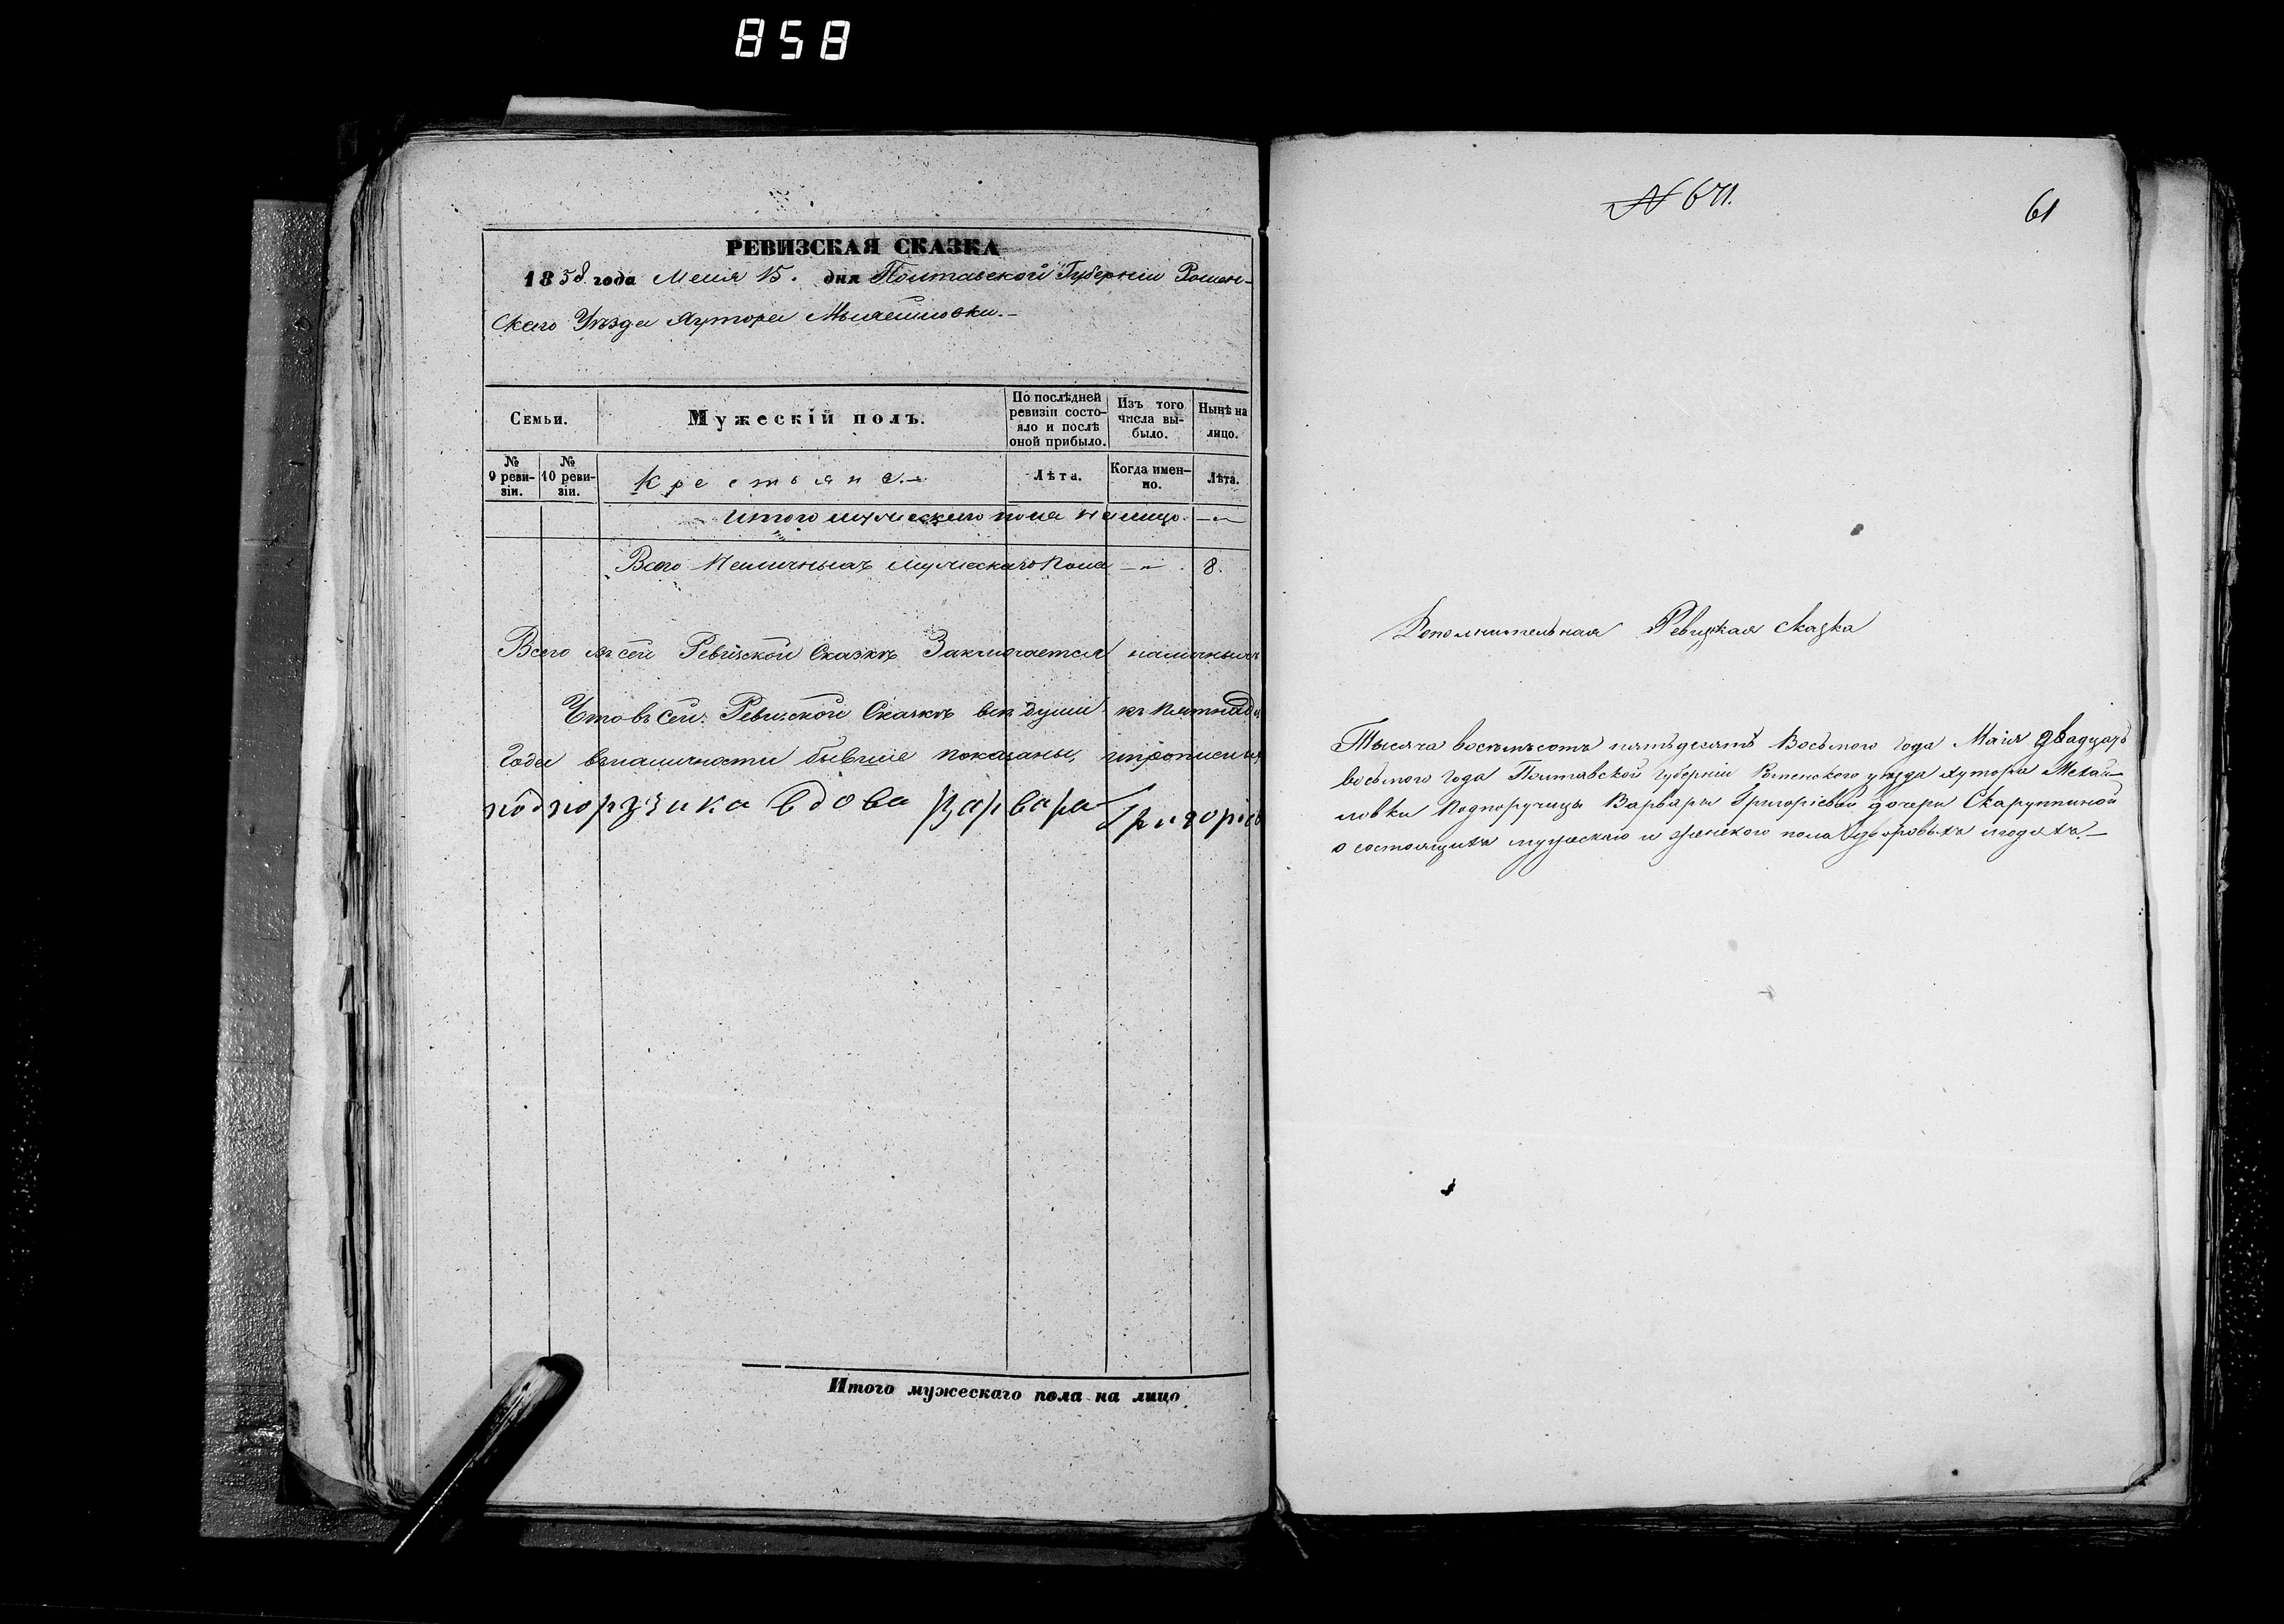 858
РЕВИЗСКАЯ СКАЗКА
1858 года Маія 15. дня Полтавской Губерніи Ромен-
скаго Уѣзда Хутора
Семьи.
Мужескій полъ.
По послѣдней ревизіи состо-
яло и послѣ оной прибыло.
Изъ того числа вы-
было.
Нынѣ на лицо.
№ 9 реви-
зіи.
№ 10 реви-
зіи.
Крестьяне.
Лѣта.
Когда имен-
но.
Лѣта.
Итого мужескаго пола на лицо. —
Всего Наличныхъ мужескаго Пола — 8.
Всего въ сей Ревизской Сказкѣ Заключается наличныхъ
Что въ сей Ревизской Сказкѣ всѣ души къ
Года въ наличности бывшіе показаны,
вдова Варвара
Итого мужескаго пола на лицо
№ 671.
61
Дополнительная Ревизкая сказка
Тысяча восемьсотъ пятьдесятъ Восьмого года Маія двадцать
восьмого года Полтавской губерніи Роменского уѣзда хутора
ловки Подпоручицы Варвары Григоріевой дочери Скаруппиной
о состоящихъ мужескаго и женского пола дворовыхъ людяхъ.—